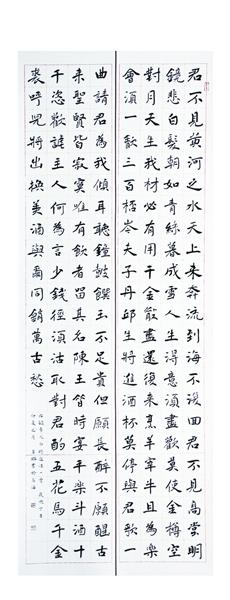 君不見黃河之水天上來奔流到海不復回君不見高堂明
鏡悲白髮朝如青絲暮成雪人生得意須盡歡莫使金樽空
對月天生我材必有用千金散盡還復來烹羊宰牛且為樂
會須一飲三百桮岑夫子丹邱生將進酒杯莫停與君歌一
曲請君為我傾耳聽鐘鼓饌玉不足貴但願長醉不願醒古
來聖賢皆寂寞惟有飲者留其名陳王昔時宴平樂斗酒十
千恣歡謔主人何為言少錢徑須沽取對君酌五花馬千金
裘呼兒將出換美酒與爾同銷萬古愁